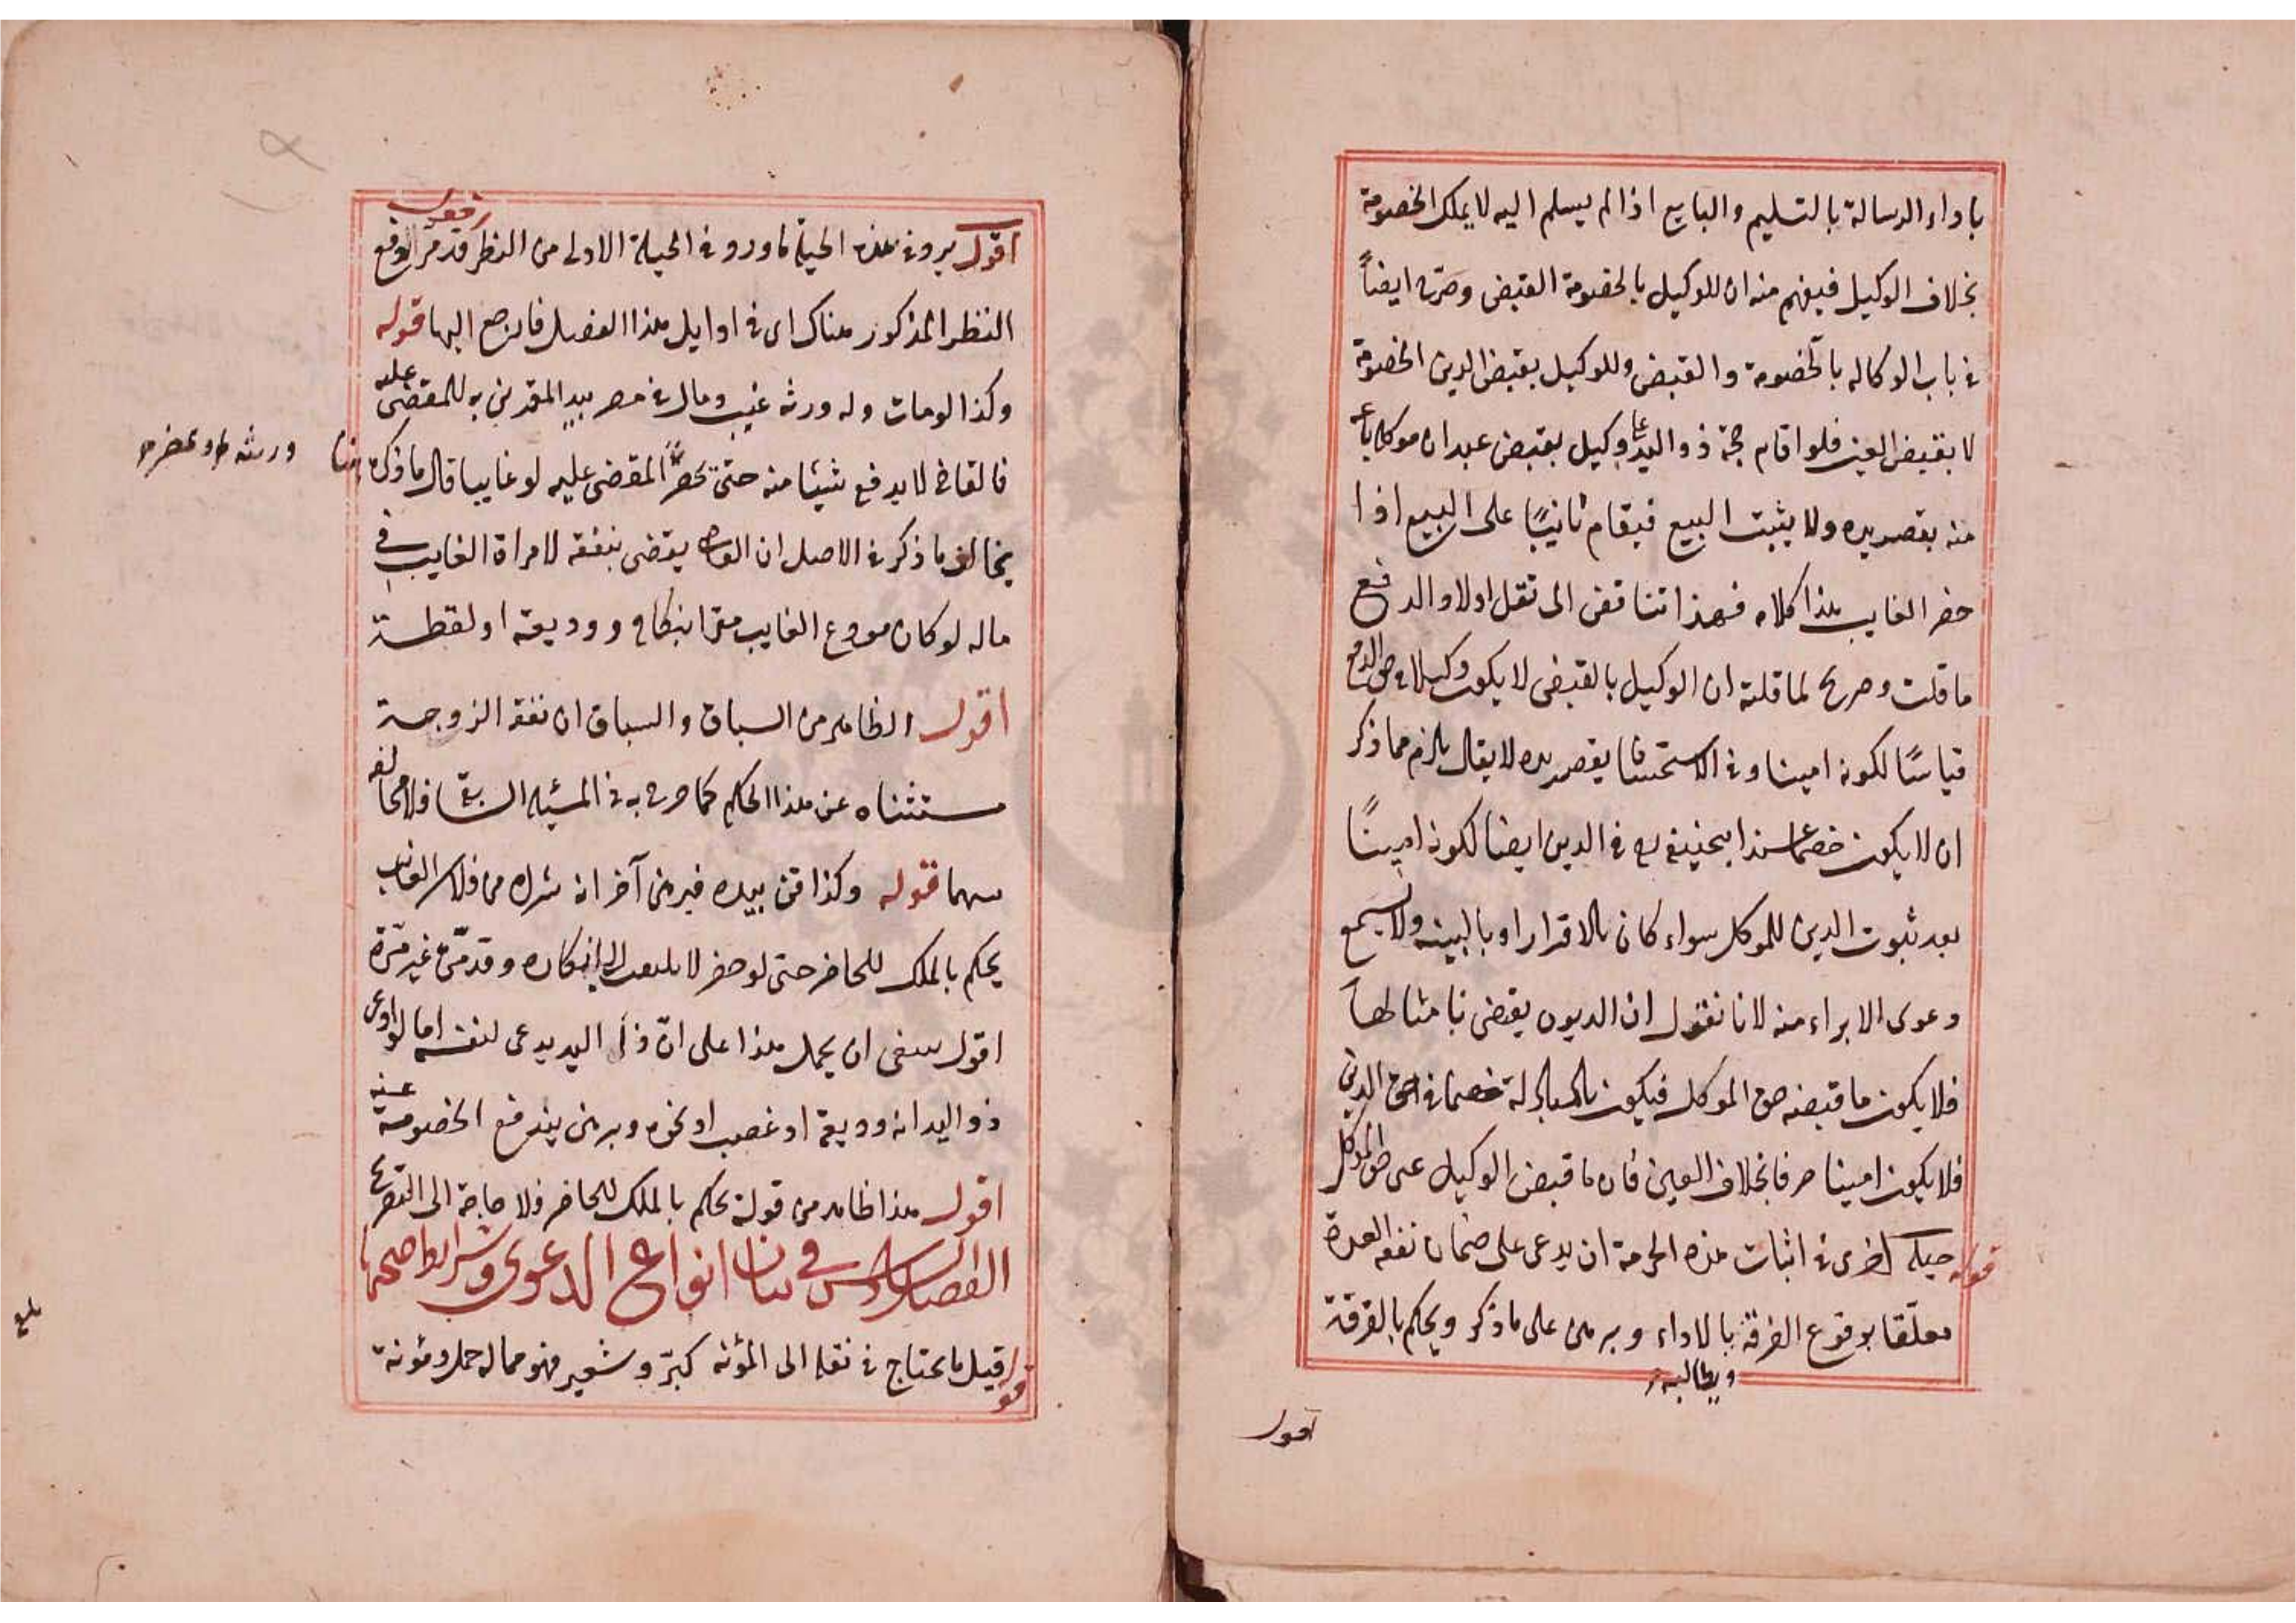 باداء الرسالة بالتسليم والبايع اذا لم يسلم اليه لا يملك الخصومة
بخلاف الوكيل فيفهم منه ان للوكيل بالخصومة القبض وصرح ايضاً
في باب الوكاله بالخصومة والقبض وللوكيل بقبض الدين الخصومة
لا بقبض العين فلو اقام حجة ذو اليد على وكيل بقبض عبد ان موكله باع
منه بقصر يده ولا يثبت البيع فيقام ثانيًا على البيع اذا
حضر الغايب هذا كلامه فهذا تناقض الى نقل اولا والدفع
ما قلت وصريح لما قلته ان الوكيل بالقبض لا يكون وكيلا في حق الدفع
قياسًا لكونه امينا وفي الاستحسان يقصر يده لا يقال يلزم مما ذكر
ان لا يكون خصما عند ابيحنيفة في الدين ايضا لكونه امينًا
بعد ثبوت الدين للموكل سواء كان بالاقرار او بالبينه ولا يسمع
دعوى الابراء منه لانا نقول ان الديون يقضى بامثالها
فلا يكون ما قبضه حق الموكل فيكون بالمبادلة خصما في حق الدين
فلا يكون امينا صرفا بخلاف العين فان ما قبض الوكيل عين حق الموكل
قوله حيلة اخرى في اثبات هذه الحرمة ان يدعى على ضمان نفقة العدة
معلقا بوقوع الفرقة بالاداء وبرهن على ما ذكر ويحكم بالفرقة
ويطالبه
اقول
اقول يرد في هذه الحيلة ما ورد في الحيلة الاولى من النظر قد مر الدفع
النظر المذكور هناك اى في اوايل هذا الفصل فارجع اليها قوله
وكذا لو مات وله ورثه غيب ومال في مصر بيد المقر به للمقضى عليه
فالقاضى لا يدفع شيئا منه حتى يحضر المقضى عليه لو غايبا قال ما ذكر هنا
يخالف ما ذكر في الاصل ان القاضى يقضى بنفقة لامراة الغايب في
ماله لو كان مودع الغايب مقرا بنكاح ووديعة او لقطة
اقول الظاهر من السباق والسياق ان نفقة الزوجة
مستثناه عن هذا الحكم كما صرح به في المسئلة السابقة فلا مخالفة
بينهما قوله وكذا قن بيده فبرهن آخر انه شراه من فلان الغايب
يحكم بالملك للحاضر حتى لو حضر لا يلتفت الى انكاره وقد مر غير مرة
اقول ينبغى ان يحمل هذا على ان ذا اليد يدعى لنفسه اما لو ادعى
ذو اليد انه وديعة او غصب او نحوه وبرهن يندفع الخصومة عنه
اقول هذا ظاهر من قوله يحكم بالملك للحاضر فلا حاجة الى التصريح
الفصل السادس في بيان انواع الدعوى وشرايط صحتها
قوله قيل ما يحتاج في نقله الى المؤنه كبرّ وشعير فهو مما له حمل ومؤنة
بلغ